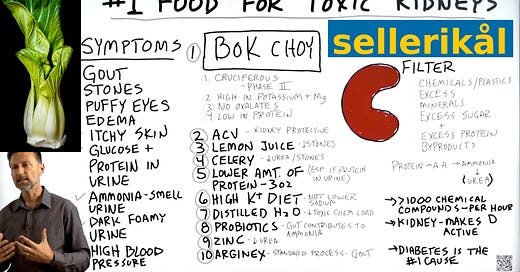 #1 FOOD FOR TOXIC KIDNEYS
SYMPTOMS
GOUT
STONES
PUFFY EYES
EDEMA
ITCHY SKIN
GLUCOSE +
PROTEIN IN
URINE
AMMONIA-SMELL
URINE
DARK FOAMY
URINE
HIGH BLOOD
PRESSURE
1 BOK CHOY
1 CRUCIFEROUS
-PHASE II
2 HIGH IN POTASSIUM + Mg
3 NO OXALATES
4 LOW IN PROTEIN
2 ACV - KIDNEY PROTECTIVE
3 LEMON JUICE - ↓STONES
4 CELERY - ↓UREA/STONES
5 LOWER AMT. OF (ESP IF PROTEIN
PROTEIN-3OZ IN URINE)
6 HIGH K+ DIET - NOT LOWER
SODIUM
7 DISTILLED H2O - ↓TOXIC CHEM LOAD
8 PROBIOTICS - GUT CONTRIBUTES TO
AMMONIA
9 ZINC - ↓UREA
10 ARGINEX - STANDARD PROCESS - GOUT
sellerikål
FILTER
CHEMICALS/PLASTICS
EXCESS
MINERALS
EXCESS SUGAR
+
EXCESS PROTEIN
BYPRODUCTS
PROTEIN → AA → AMMONIA
↓
(UREA)
→ >1000 CHEMICAL
COMPOUNDS-PER HOUR
→ KIDNEY-MAKES D
ACTIVE
→ DIABETES IS THE
#1 CAUSE